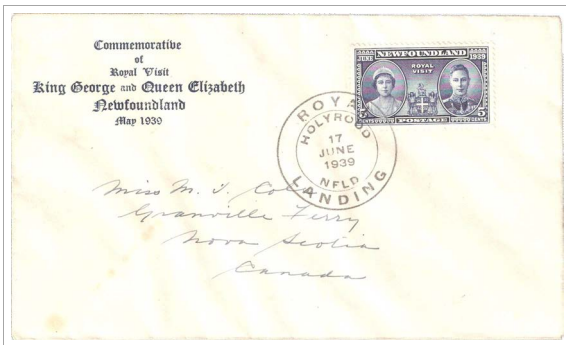 Commemorative
of
Royal Visit
King George and Queen Elizabeth
Newfoundland
May 1939
JUNE NEWFOUNDLAND 1939
ROYAL
VISIT
5 CENTS POSTAGE CENTS 5
ROYAL
HOLYROOD
17
JUNE
1939
NFLD
LANDING
Miss M.
Granville Ferry
Nova Scotia
Canada